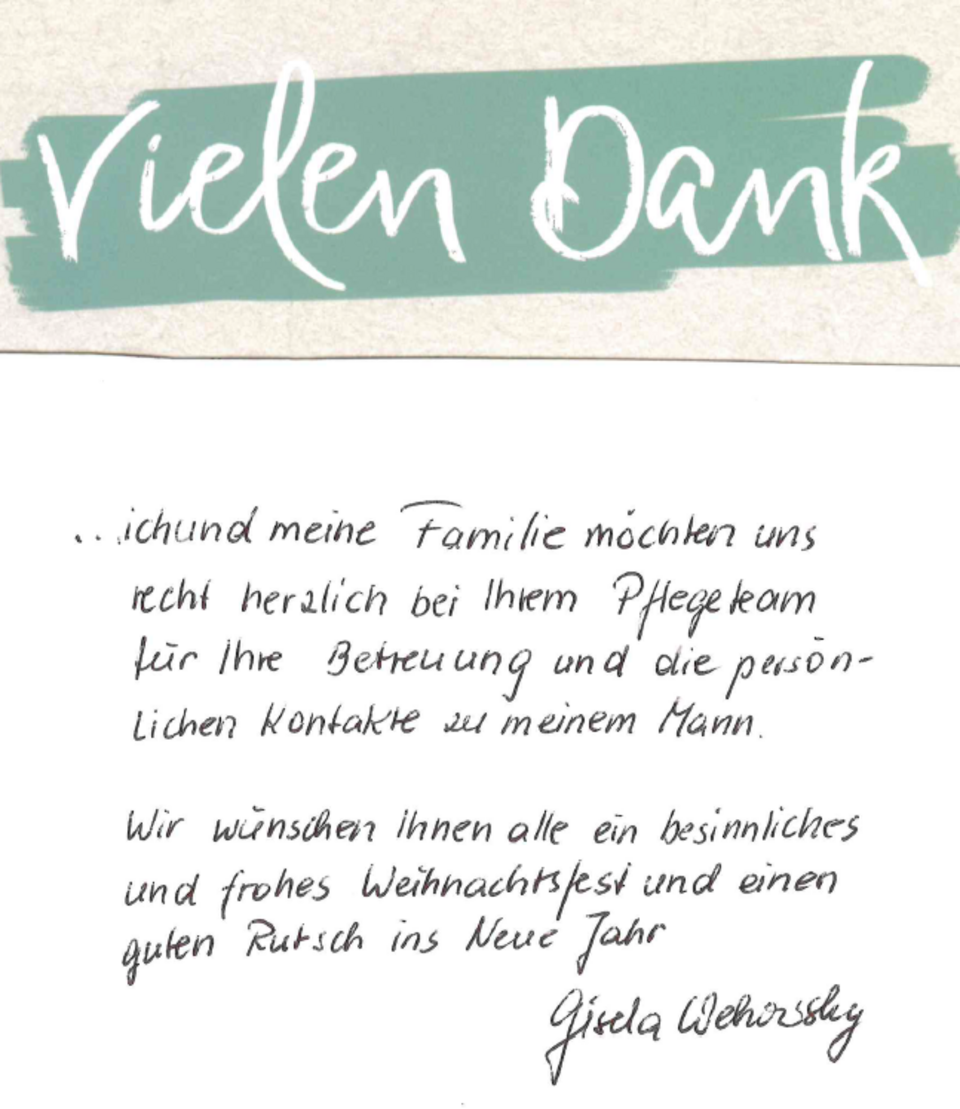 Vielen Dank
...ich und meine Familie möchten uns
recht herzlich bei Ihrem Pflegeteam
für Ihre Betreuung und die persön-
lichen Kontakte zu meinem Mann.
Wir wünschen Ihnen alle ein besinnliches
und frohes Weihnachtsfest und einen
guten Rutsch ins Neue Jahr
Gisela